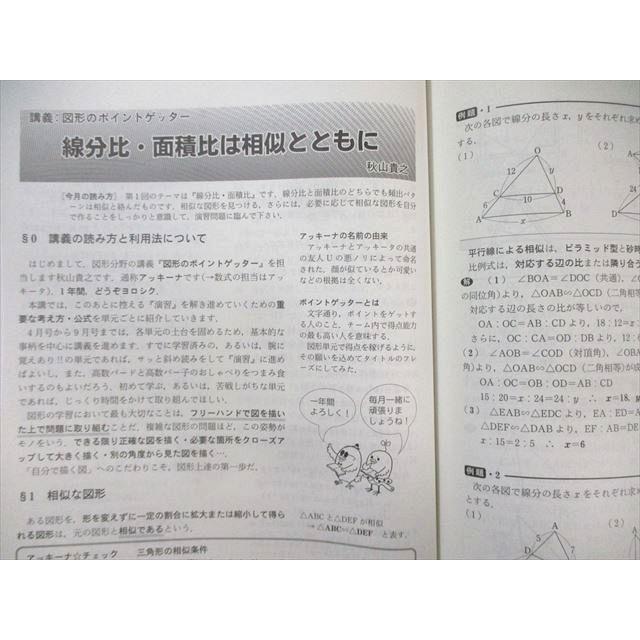 講義:図形のポイントゲッター
線分比・面積比は相似とともに
秋山貴之
［今月の読み方］ 第1回のテーマは『線分比・面積比』です。線分比と面積比のどちらでも頻出パターンは相似と絡んだものです。相似な図形を見つける、さらには、必要に応じて相似な図形を自分
で作ることをしっかりと意識して、演習問題に臨んで下さい。
§0 講義の読み方と利用法について
はじめまして。図形分野の講義『図形のポイントゲッター』を担
当します秋山貴之です。通称アッキーナです(→数式の担当はアッ
キータ)。1年間、どうぞヨロシク。
本講では、このあとに控える『演習』を解き進めていくための重
要な考え方・公式を単元ごとに紹介していきます。
4月号から9月号までは、各単元の土台を固めるため、基本的な
事柄を中心に講義を進めます。すでに学習済みの、あるいは、腕に
覚えあり!!の単元であれば、サッと斜め読みをして『演習』に進め
ばよいし、また、高数バードと高数バー子のおしゃべりをつまみ食
いするのもよいだろう。初めて学ぶ、あるいは、苦戦しがちな単元
であれば、じっくり時間をかけて取り組んでほしい。
図形の学習において最も大切なことは、フリーハンドで図を描い
た上で問題に取り組むことだ。複雑な図形の問題ほど、この姿勢が
モノをいう。できる限り正確な図を描く・必要な箇所をクローズア
ップして大きく描く・別の角度から見た図を描く…。
「自分で描く図」へのこだわりこそ、図形上達の第一歩だ。
アッキーナの名前の由来
アッキーナとアッキータの共通
の友人Uの悪ノリによって命名
された。顔が似ているとか可愛い
などの根拠は全くない。
ポイントゲッターとは
文字通り、ポイントをゲットす
る人のこと。チーム内で得点能力
の最も高い人を意味する。
図形単元で得点を稼げるように、
その願いを込めてタイトルのフレ
ーズにしてみた。
一年間
よろしく!
毎月一緒に
頑張りま
しょうね!
§1 相似な図形
ある図形を、形を変えずに一定の割合に拡大または縮小して得ら
れる図形は、元の図形と相似であるという。
△ABCと△DEFが相似
→ △ABC∽△DEF と表す。
アッキーナ☆チェック 三角形の相似条件
例題・1
次の各図で線分の長さx, yをそれぞれ求め
する.
(1)
(2)
O
12
y
C
10
D
6
4
A
x
B
平行線による相似は、ピラミッド型と砂時
比例式は、対応する辺の比または隣り合う
解 (1) ∠BOA=∠DOC(共通), ∠
の同位角)より, △OAB∽△OCD(二角相
対応する辺の長さの比が等しいので,
OA:OC=AB:CDより, 18:12=
さらに, OC:CA=OD:DBより, 12:
(2) ∠AOB=∠COD(対頂角), ∠OB
角)より, △OAB∽△OCD(二角相等)が成
OA:OC=OB:OD=AB:CD
15:20=x:24=24:y ∴ x=18,
(3) △EAB∽△EDCより, EA:ED=A
△DEF∽△DABより, EF:AB=DE
x:15=2:5 ∴ x=6
例題・2
次の図で線分の長さxをそれぞれ求め
とする.
(1)
(2)
A
D